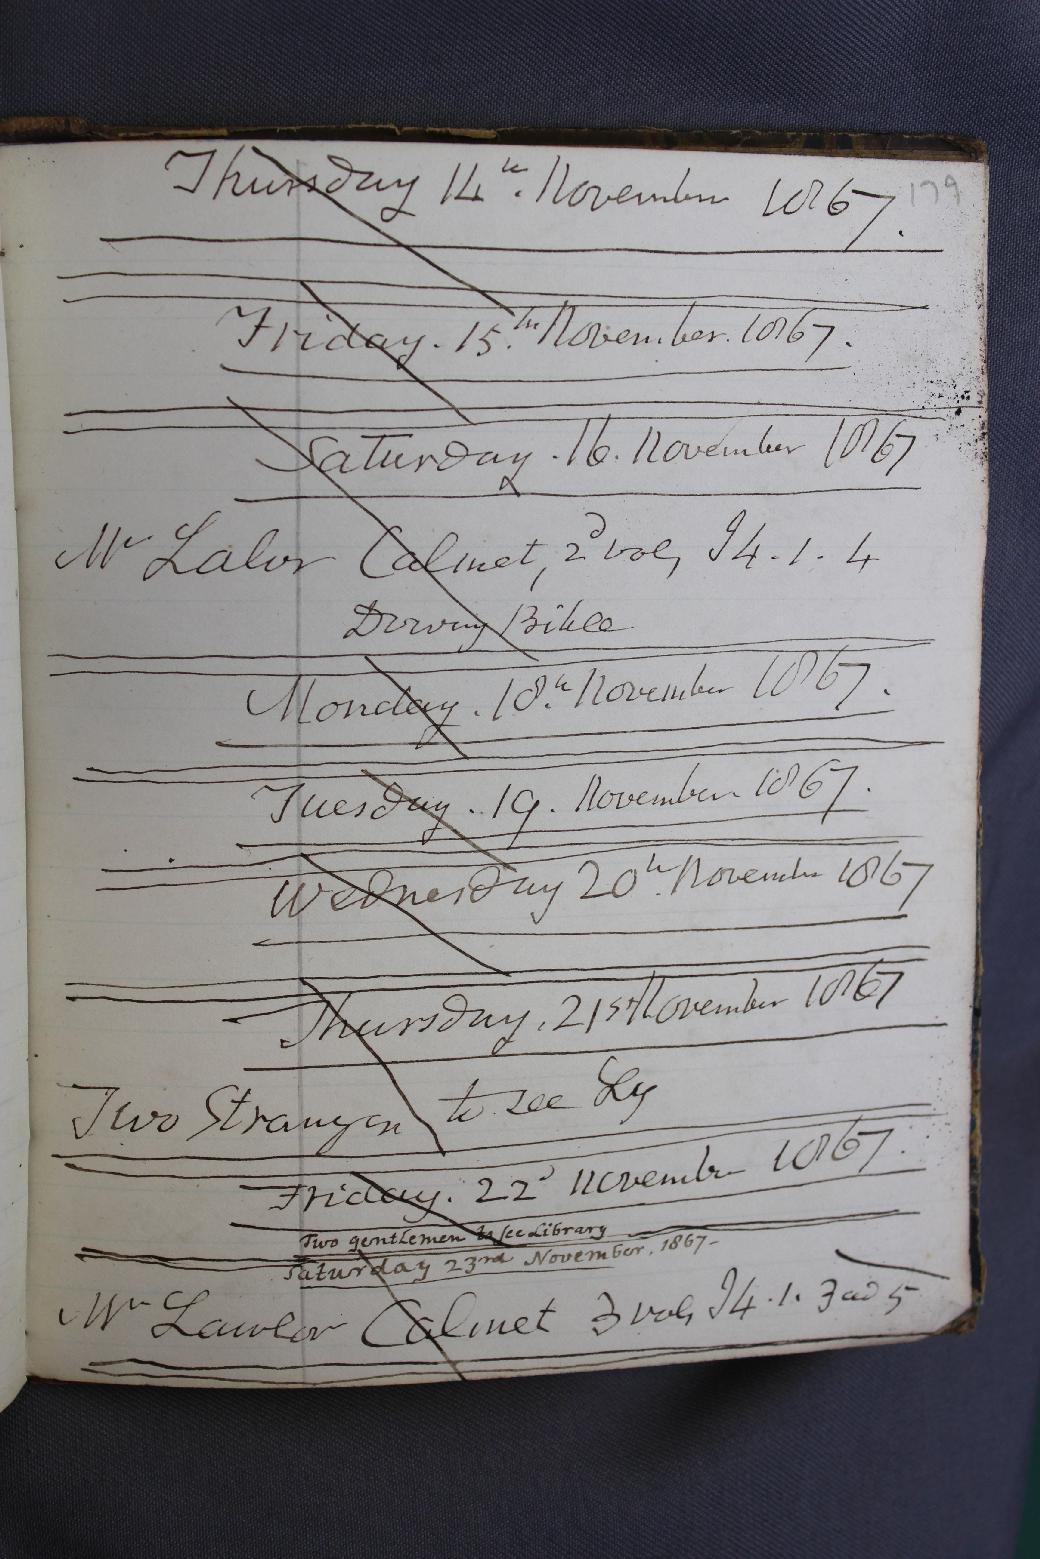 179
Thursday 14th. November 1867.
Friday. 15th November. 1867.
Saturday. 16. November 1867
Mr Lalor Calmet, 2d vol, I4. 1. 4
Douay Bible
Monday. 18th November 1867.
Tuesday. 19. November 1867.
Wednesday 20th. November 1867
Thursday. 21st November 1867
Two Strangers to see Ly
Friday. 22d November 1867.
Two gentlemen to see Library
Saturday 23rd November. 1867-
Mr Lawlor Calmet 3 vols I4. 1. 3 ad 5